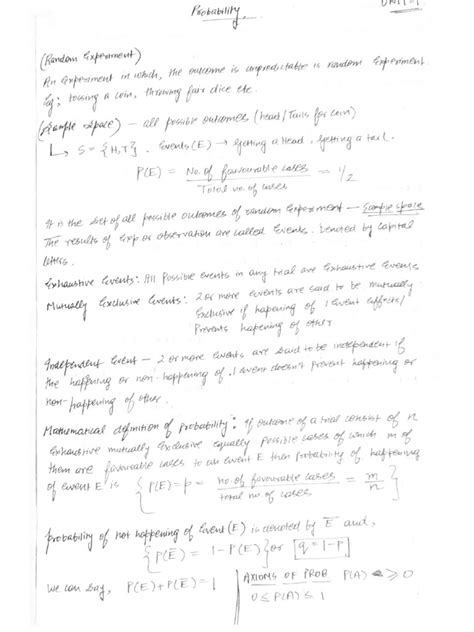 Probability
UNIT-1
(Random Experiment)
An Experiment in which, the outcome is unpredictable is random Experiment.
Eg; tossing a coin, throwing fair dice etc.
(Sample space) — all possible outcomes (head/Tails for coin)
↳ S = {H,T}. Events (E) → getting a Head, getting a tail.
P(E) = No. of favourable cases / Total no. of cases = 1/2
It is the set of all possible outcomes of random Experiment — Sample space
The results of Exp or observation are called Events. Denoted by capital
letters.
Exhaustive Events: All Possible events in any trial are Exhaustive Events
Mutually Exclusive Events: 2 or more events are said to be mutually
Exclusive if hapening of 1 Event effects/
Prevents hapening of other
Independent Event — 2 or more Events are said to be independent if
the happening or non-happening of 1 event doesn't prevent happening or
non-happening of other.
Mathematical definition of Probability: If outcome of a trial consist of n
Exhaustive mutually Exclusive equally possible cases of which m of
them are favourable cases to an event E then Probability of happening
of event E is {P(E)=p= no. of favourable cases / total no of cases = m/n}
probability of not happening of Event (E) is denoted by E̅ and,
{P(E̅) = 1-P(E)} or [q=1-p]
We can say, P(E)+P(E̅)=1
AXIOMS OF PROB P(A) ≥ 0
0≤P(A)≤1